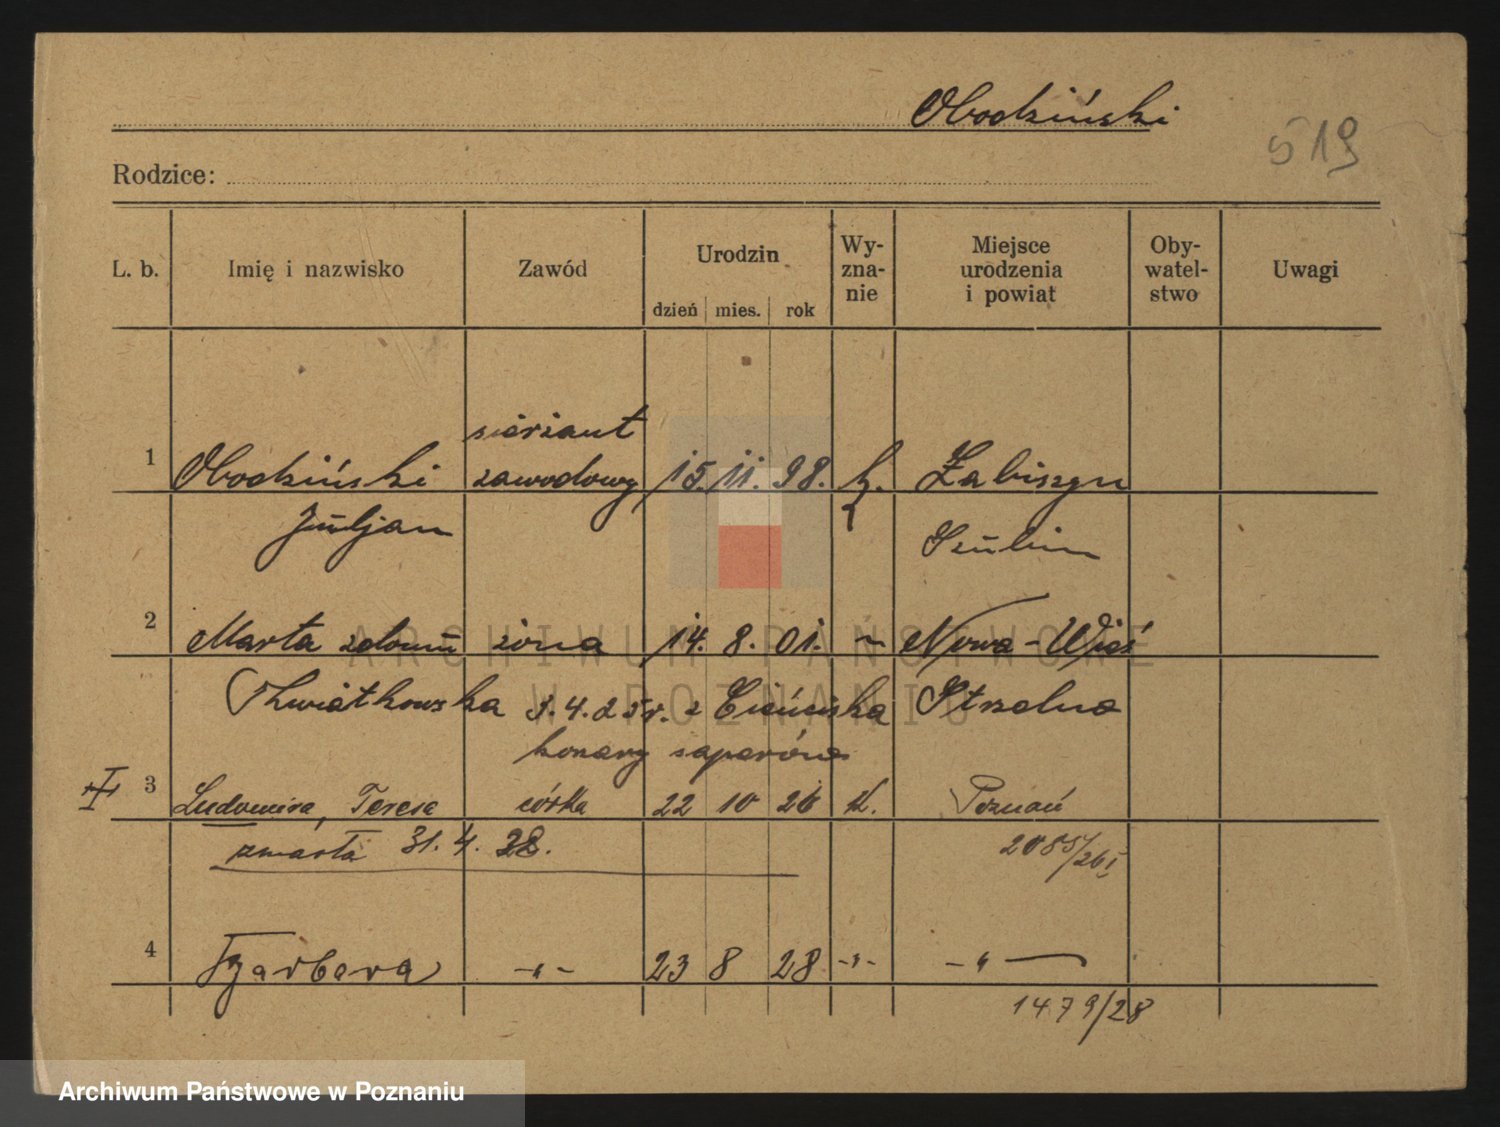 Obodziński
519
Rodzice:
L. b. Imię i nazwisko Zawód Urodzin dzień mies. rok Wy-zna-nie Miejsce urodzenia i powiat Oby-watel-stwo Uwagi
sierżant
1 Obodziński zawodowy 15. 11. 98. k. Łabiszyn
Juljan Szubin
2 Marta z domu żona 14. 8. 01. " Nowa-Wieś
Kwiatkowska 3.4.25r. z Strzelno
koszary saperów
3 Ludomira, Teresa córka 22 10 26 k. Poznań
zmarła 31. 4. 28. 2085/26 I
4 Barbara -"- 23 8 28 -"- -"-
1479/28
ARCHIWUM PAŃSTWOWE
W POZNANIU
Archiwum Państwowe w Poznaniu